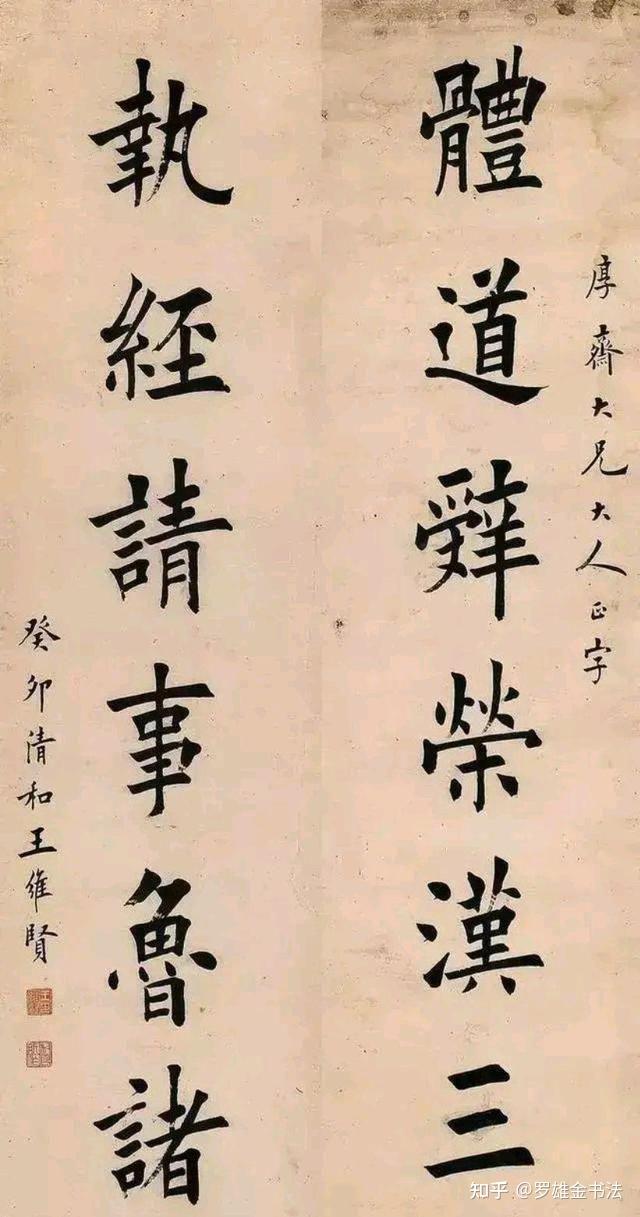 厚齋大兄大人正字
體道辭榮漢三
執經請事魯諸
癸卯清和王維賢
知乎 @罗雄金书法